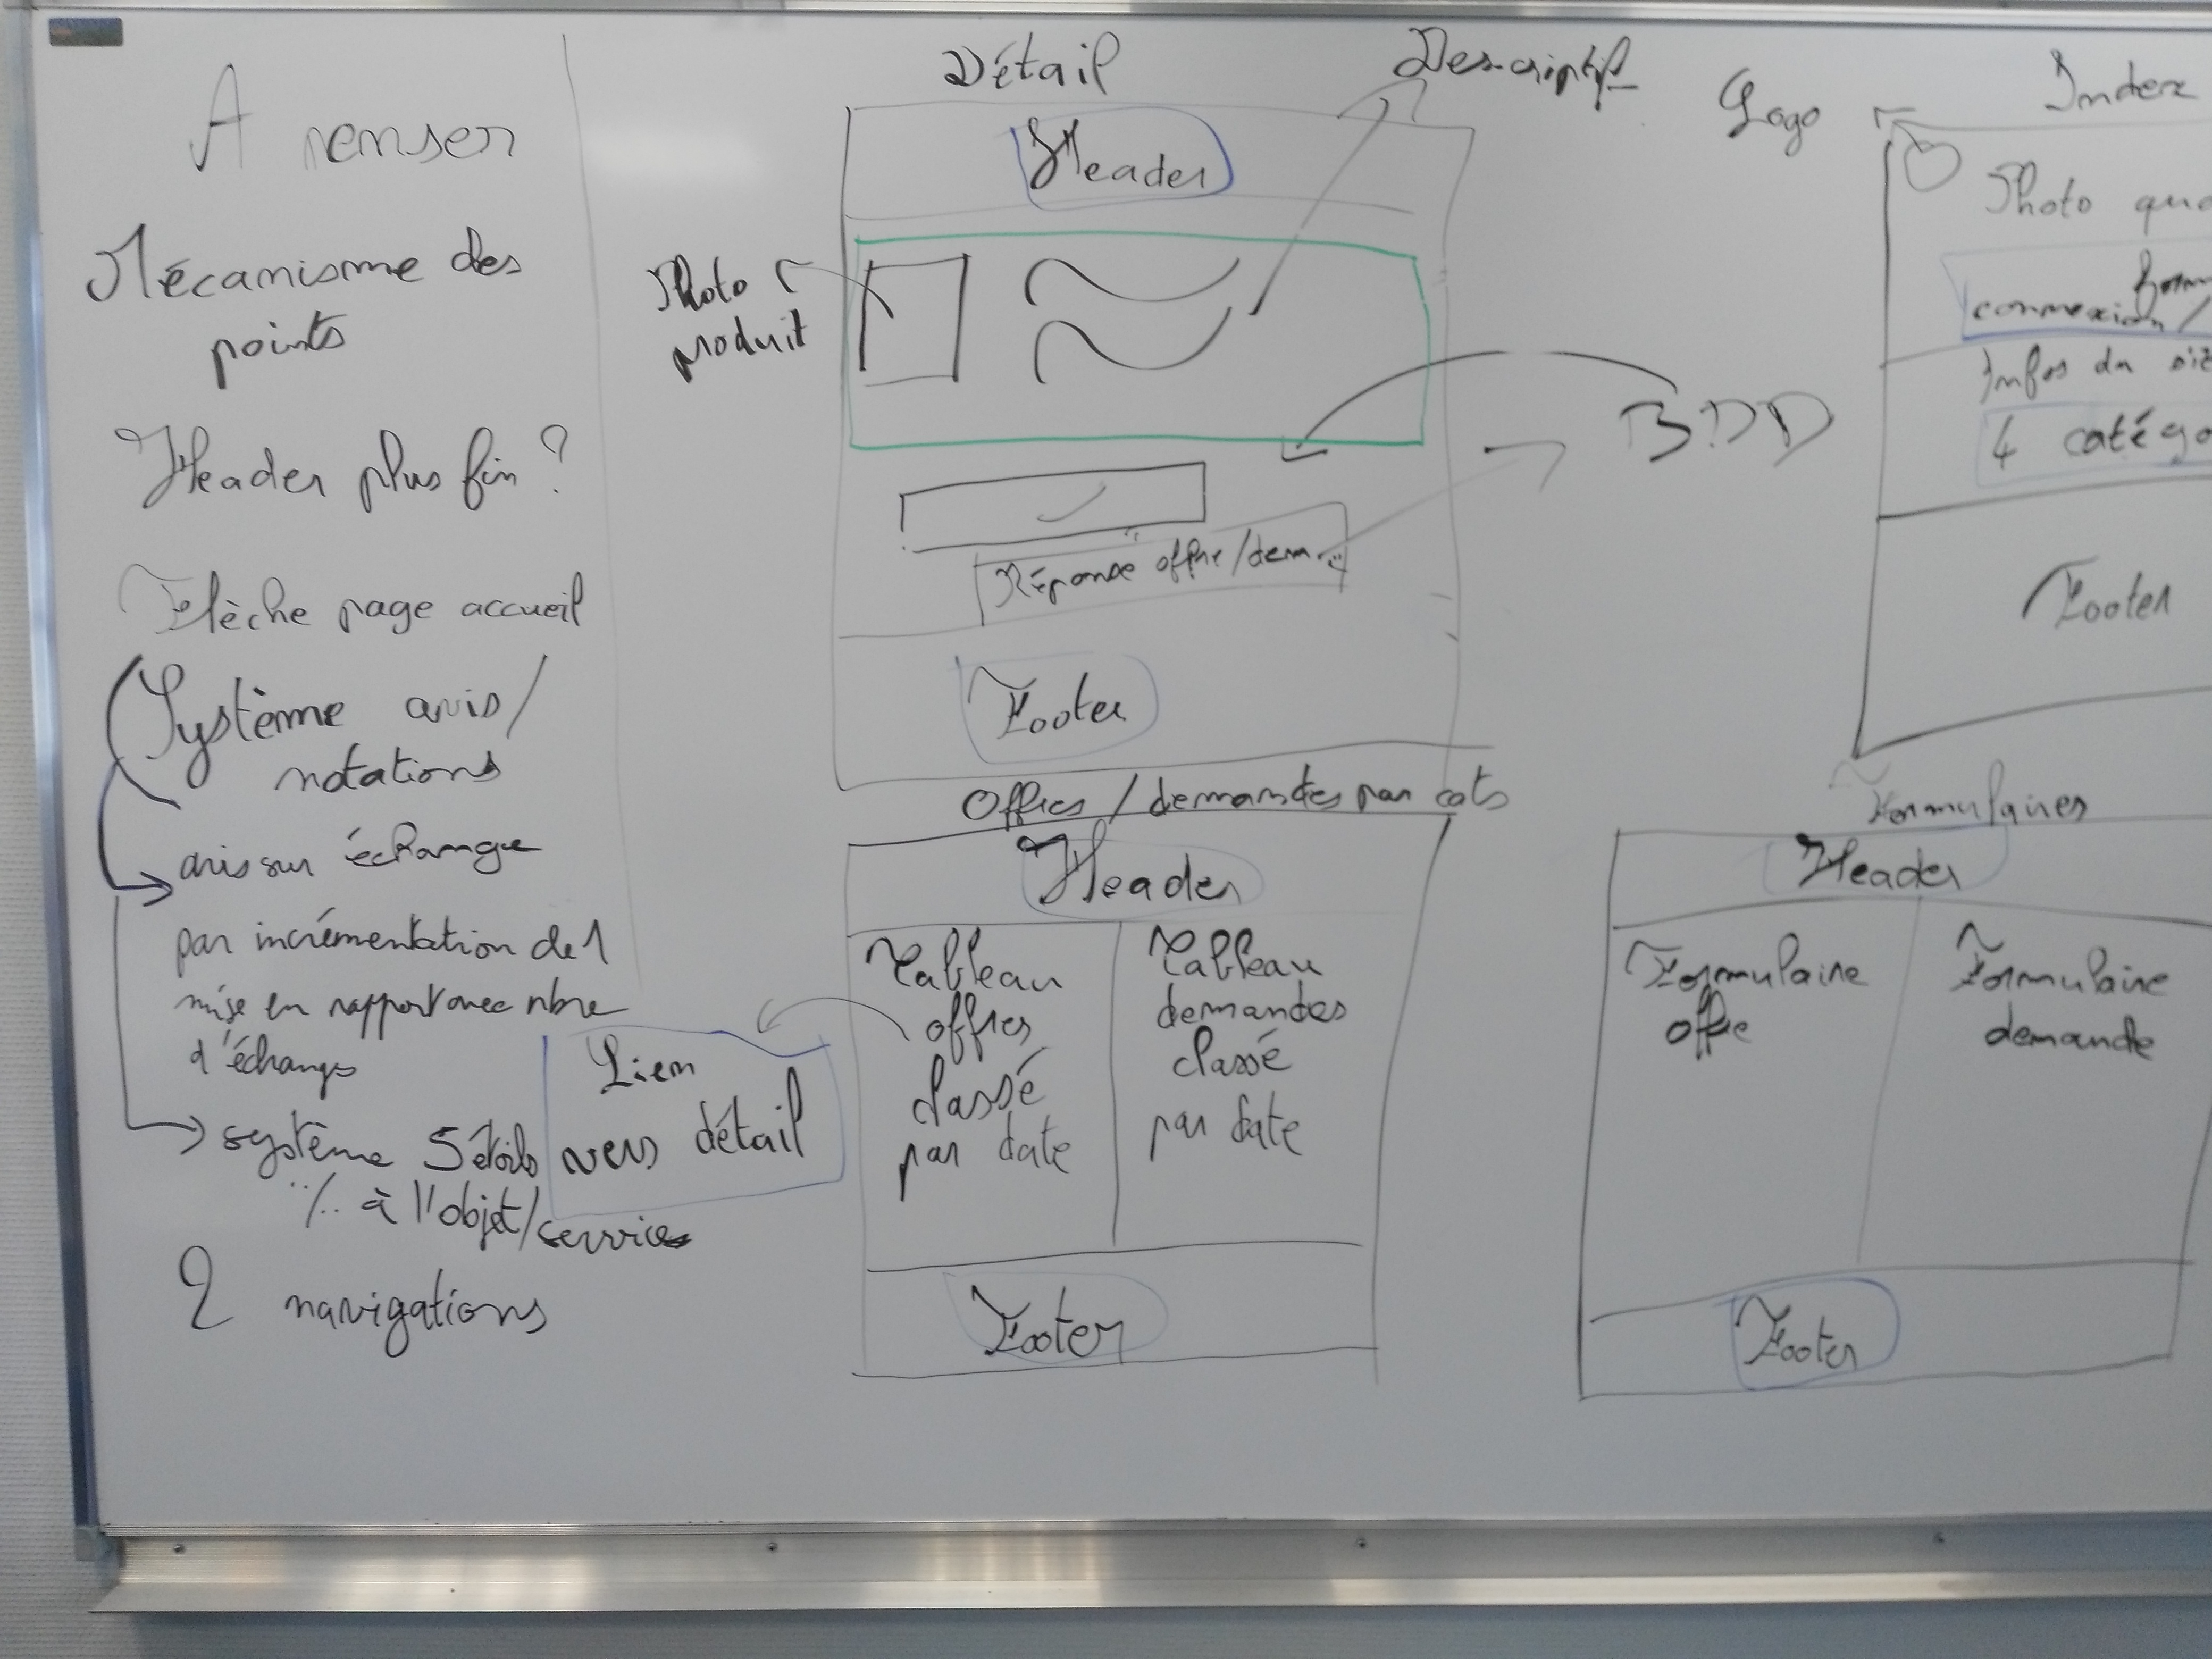 A penser
Mécanisme des
points
Header plus fin ?
Flèche page accueil
Système avis/
notations
avis sur échange
par incrémentation de 1
mise en rapport avec nbre
d'échangs
système 5 étoils
% à l'objet/services
2 navigations
Détail
Header
Descriptif
Photo
produit
BDD
Réponse offre/dem...
Footer
Offres / demandes par cats
Header
Tableau
offres
classé
par date
Tableau
demandes
classé
par date
Lien
vers détail
Footer
Logo
Index
Photo qua
form
connexion/
Infos du sit
4 catégo
Footer
Formulaires
Header
Formulaire
offre
Formulaire
demande
Footer